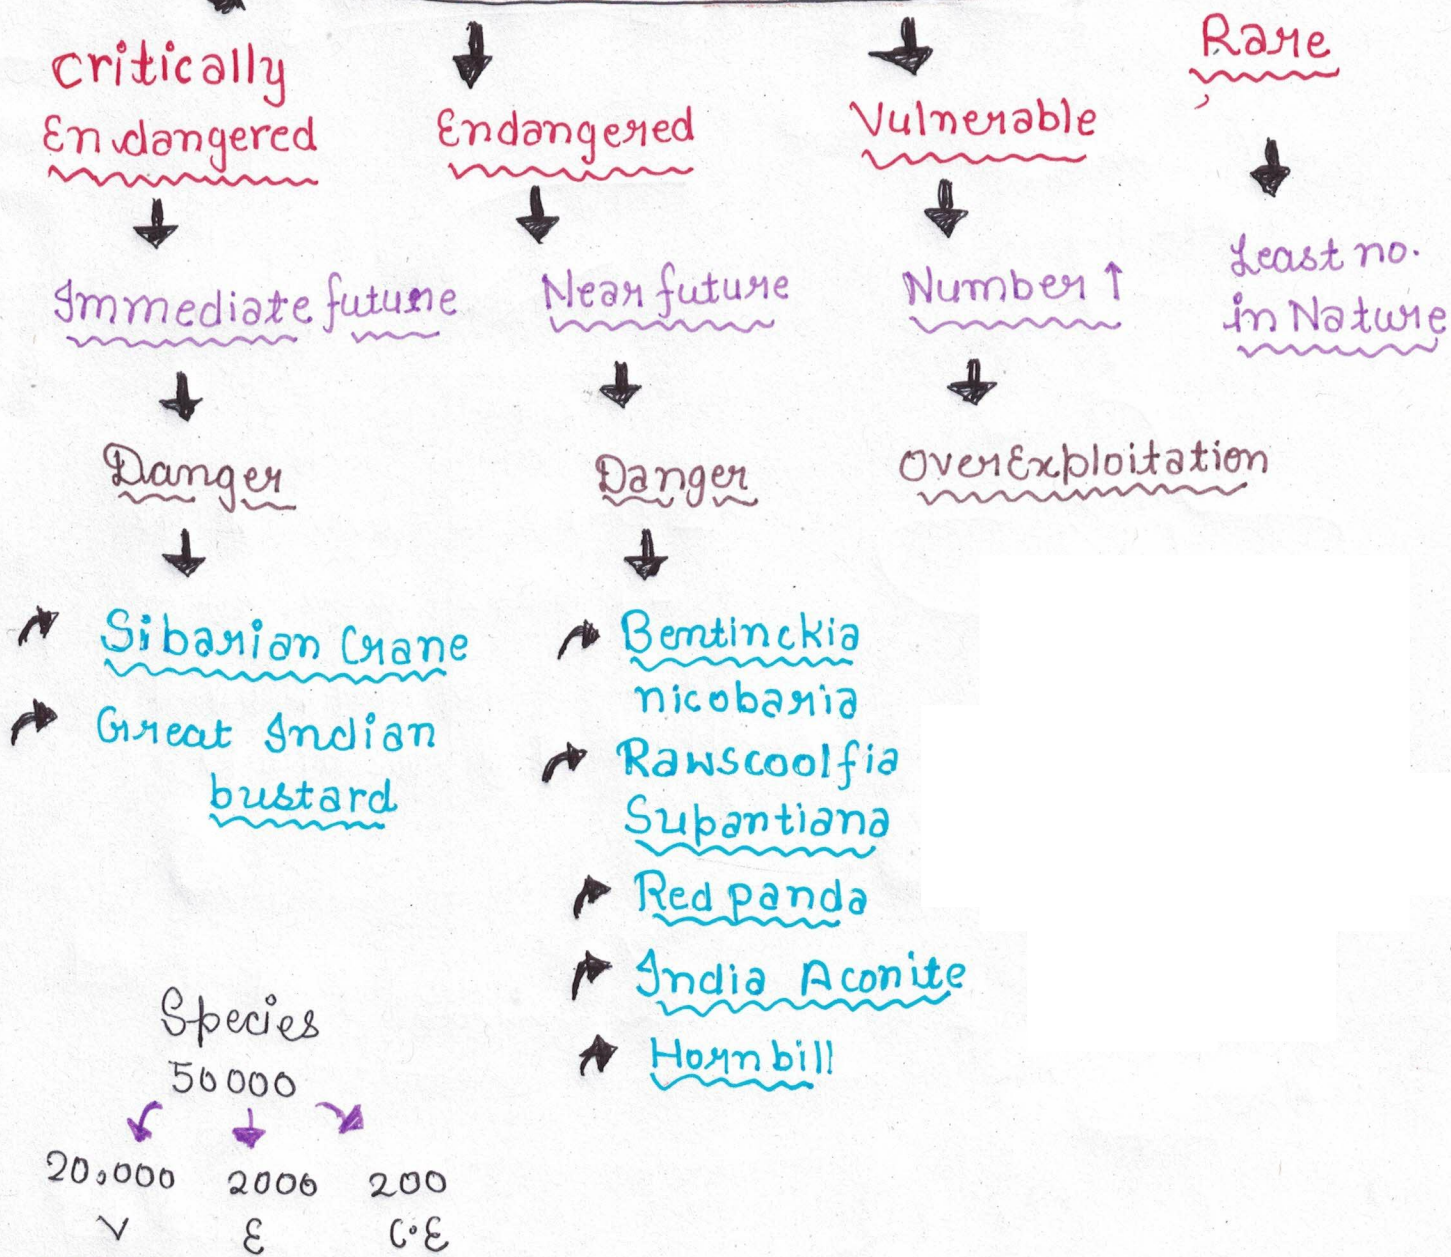 Critically
Endangered
Immediate future
Danger
Sibarian Crane
Great Indian
bustard
Endangered
Near future
Danger
Bentinckia
nicobaria
Rawscoolfia
Supantiana
Red panda
India Aconite
Hornbill
Vulnerable
Number ↑
OverExploitation
Rare
Least no.
in Nature
Species
50000
20,000 2000 200
V E C.E